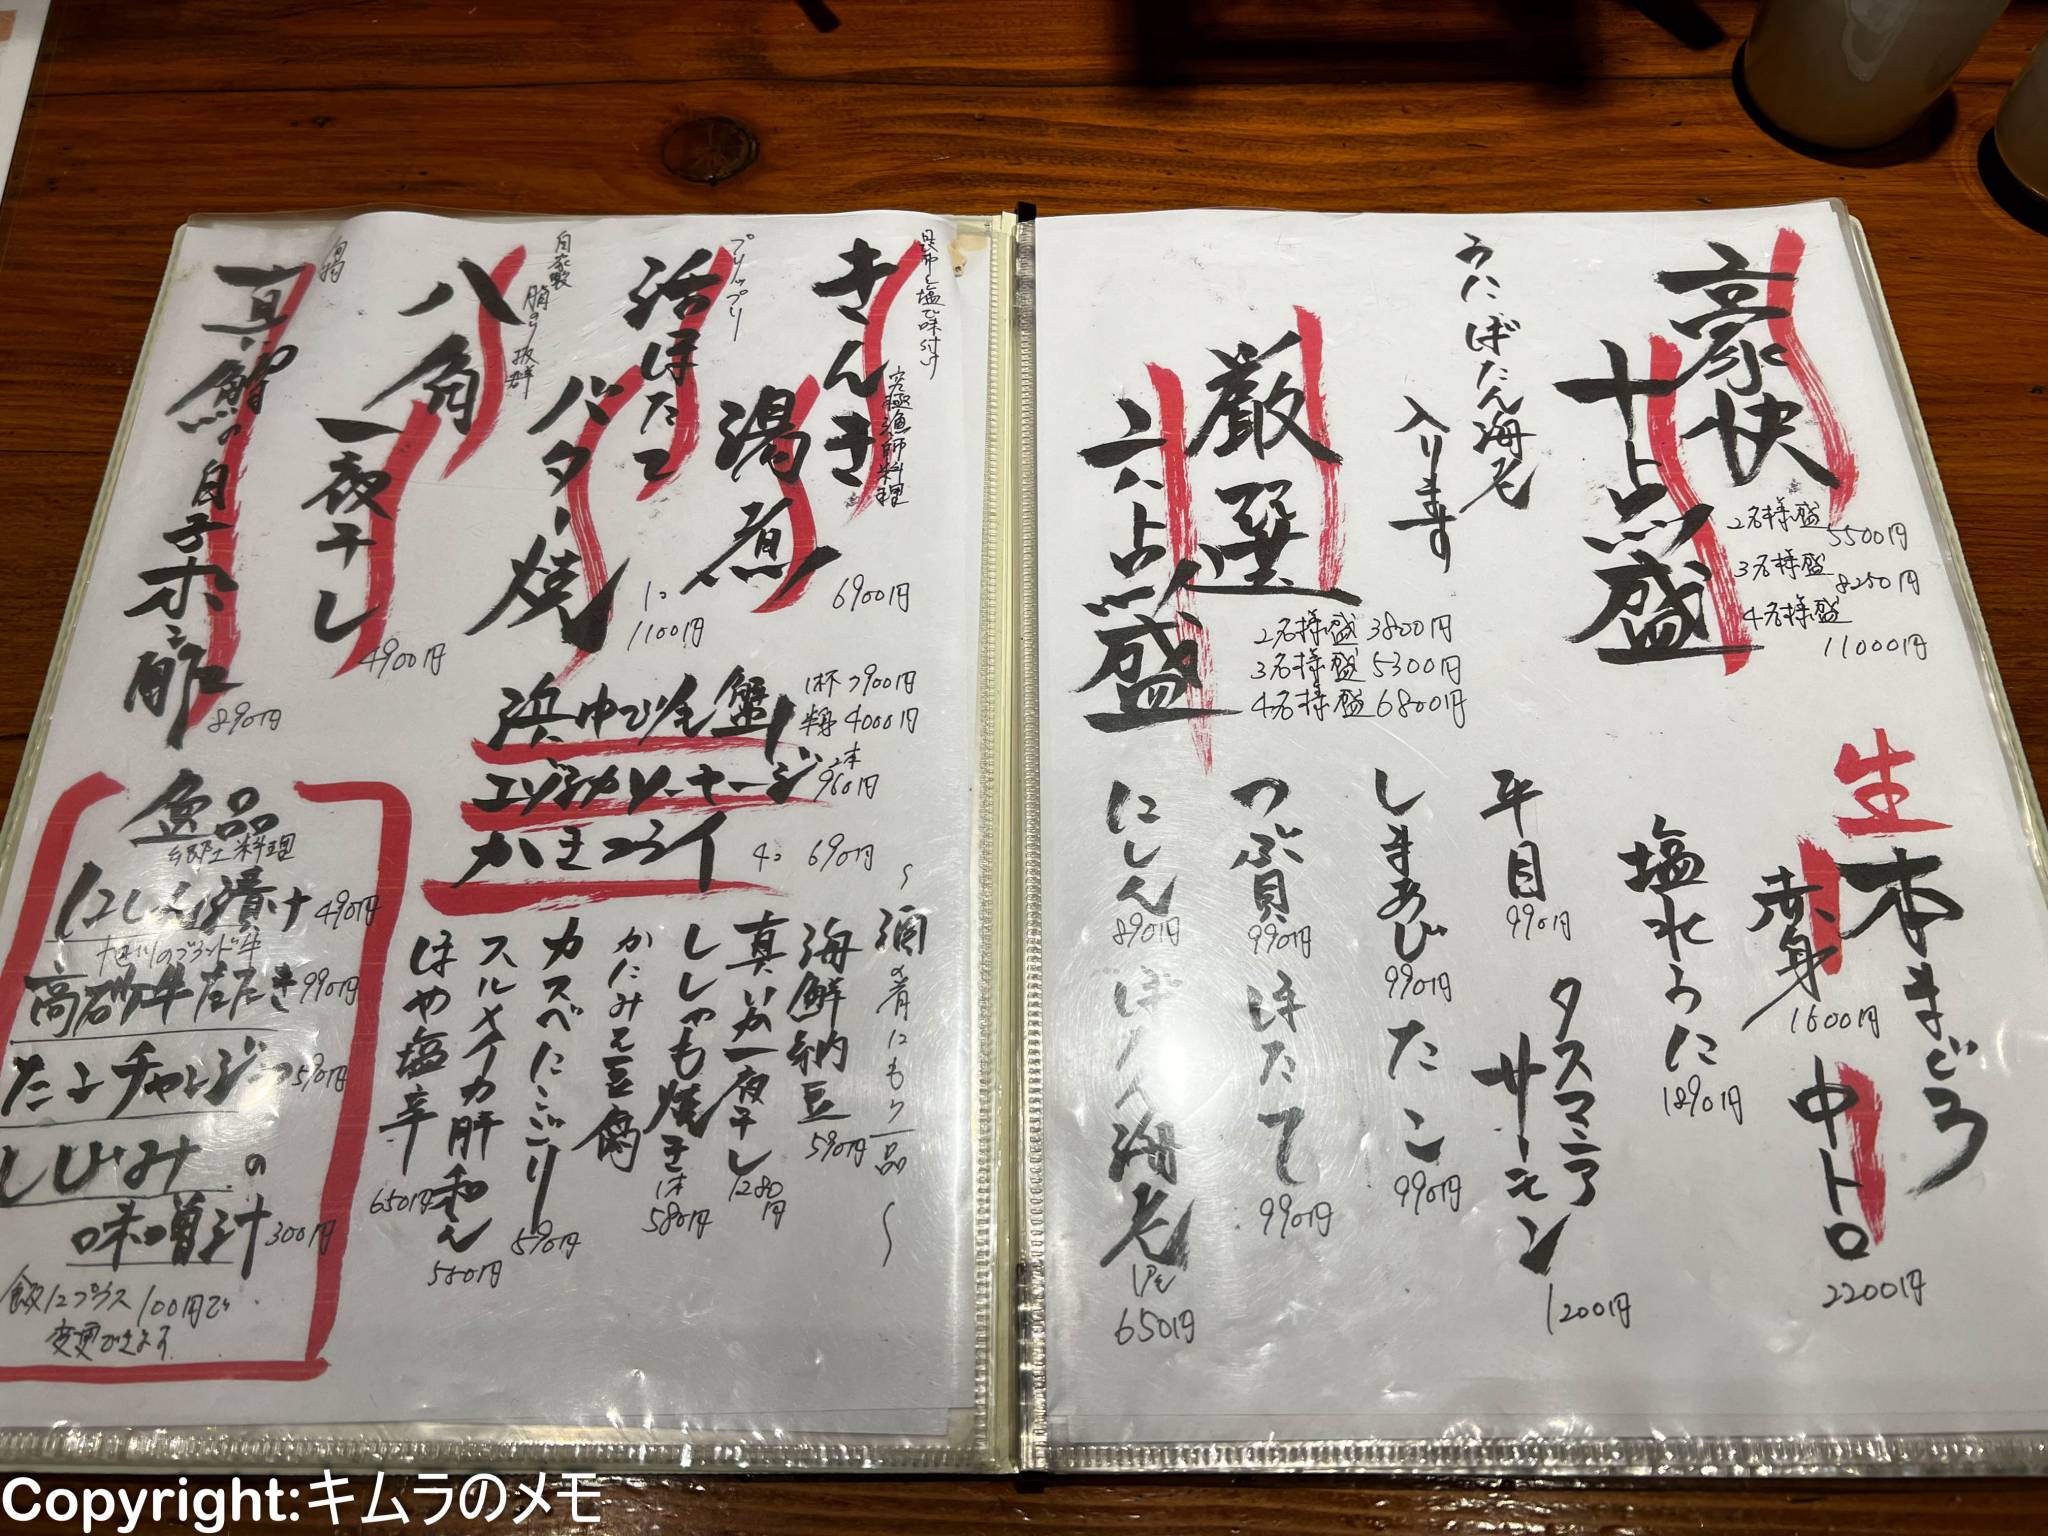 豪快
十点盛
2名様盛 5500円
3名様盛 8250円
4名様盛 11000円
うに ぼたん海老
入ります
厳選
六点盛
2名様盛 3800円
3名様盛 5300円
4名様盛 6800円
生本まぐろ
赤身 1600円
中トロ 2200円
塩水うに 1890円
平目 990円
タスマニア
サーモン 1200円
しまあじ 990円
たこ 990円
つぶ貝 990円
ほたて 990円
にしん 890円
ぼたん海老 1尾 650円
昆布と塩で味付け
究極漁師料理
きんき
湯煮 6900円
プリップリ
活ほたて
バター焼 1コ 1100円
脂のり抜群
八角
一夜干し 4900円
真鱈の白子ポン酢 890円
浜ゆで毛蟹 1杯 7900円
半身 4000円
エゾシカソーセージ 2本 960円
かきフライ 4コ 690円
〜酒の肴にもう一品〜
海鮮納豆 590円
真いか一夜干し 1280円
ししゃも焼き 1本 580円
かにみそ豆腐
カスベにこごり 590円
スルメイカ肝和え 580円
ほや塩辛 650円
逸品
郷土料理
にしん漬け 490円
旭川のブランド牛
高砂牛たたき 990円
たこチャンジャ 590円
しじみの
味噌汁 300円
飯にプラス100円で
変更できます
Copyright:キムラのメモ